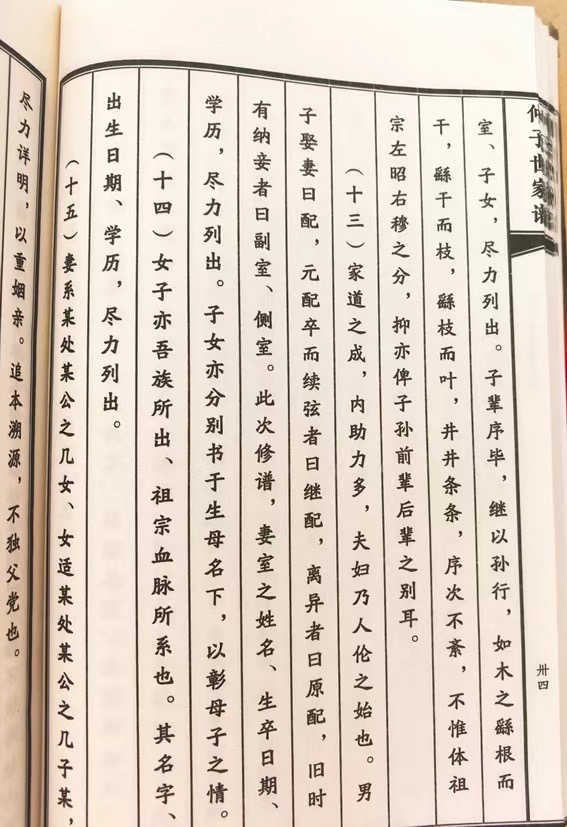 仲子世家谱
室、子女，尽力列出。子辈序毕，继以孙行，如木之繇根而
干，繇干而枝，繇枝而叶，井井条条，序次不紊，不惟体祖
宗左昭右穆之分，抑亦俾子孙前辈后辈之别耳。
（十三）家道之成，内助力多，夫妇乃人伦之始也。男
子娶妻曰配，元配卒而续弦者曰继配，离异者曰原配，旧时
有纳妾者曰副室、侧室。此次修谱，妻室之姓名、生卒日期、
学历，尽力列出。子女亦分别书于生母名下，以彰母子之情。
（十四）女子亦吾族所出、祖宗血脉所系也。其名字、
出生日期、学历，尽力列出。
（十五）妻系某处某公之几女、女适某处某公之几子某，
尽力详明，以重姻亲。追本溯源，不独父党也。
卅四